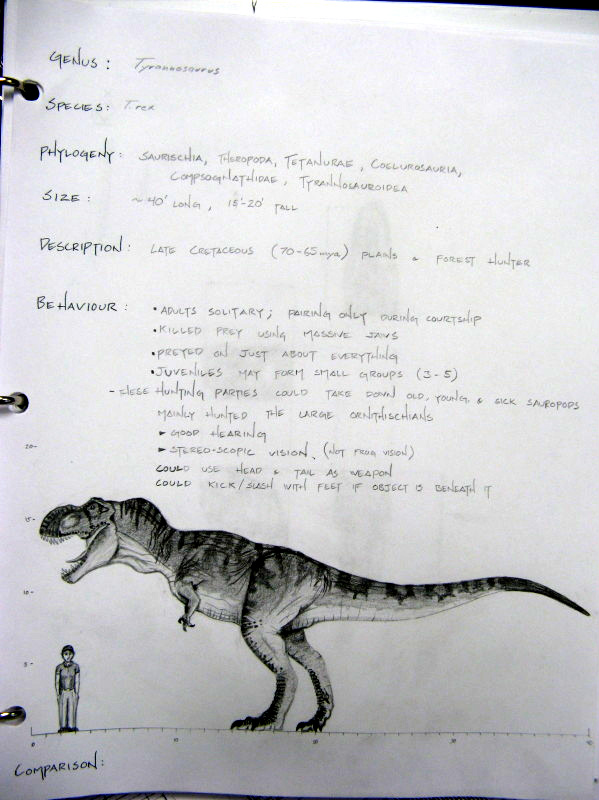 GENUS: Tyrannosaurus
SPECIES: T. rex
PHYLOGENY: SAURISCHIA, THEROPODA, TETANURAE, COELUROSAURIA,
COMPSOGNATHIDAE, TYRANNOSAUROIDEA
SIZE: ~ 40' LONG, 15'-20' TALL
DESCRIPTION: LATE CRETACEOUS (70-65mya) PLAINS & FOREST HUNTER
BEHAVIOUR: • ADULTS SOLITARY; PAIRING ONLY DURING COURTSHIP
• KILLED PREY USING MASSIVE JAWS
• PREYED ON JUST ABOUT EVERYTHING
• JUVENILES MAY FORM SMALL GROUPS (3-5)
- THESE HUNTING PARTIES COULD TAKE DOWN OLD, YOUNG, & SICK SAUROPODS
MAINLY HUNTED THE LARGE ORNITHISCHIANS
► GOOD HEARING
► STEREO-SCOPIC VISION. (NOT FROG VISION)
COULD USE HEAD & TAIL AS WEAPON
COULD KICK/SLASH WITH FEET IF OBJECT IS BENEATH IT
20-
15-
10-
5-
0 10 20 30 40
COMPARISON: